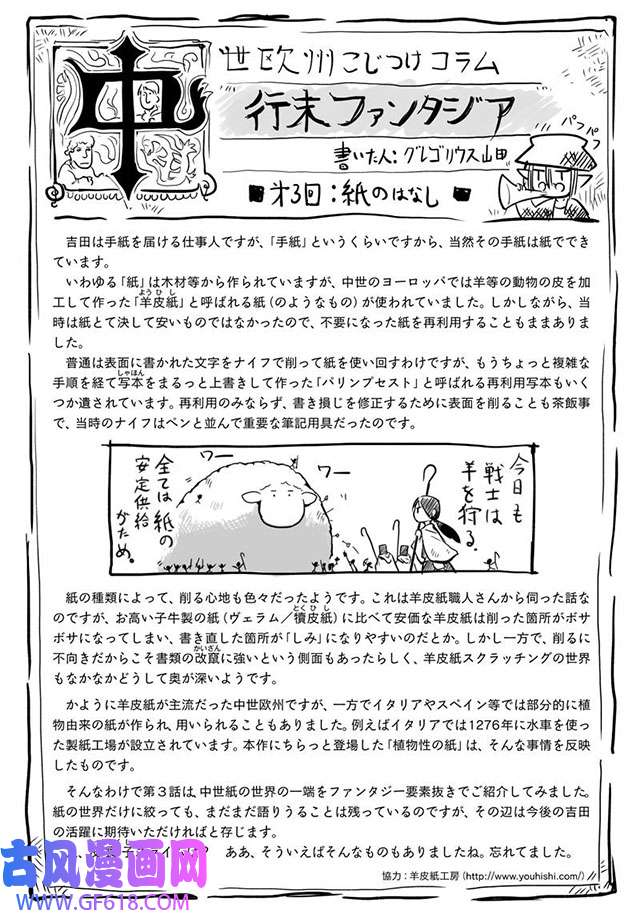 中世欧州こじつけコラム
行末ファンタジア
書いた人:グレゴリウス山田
■才3回:紙のはなし ■
パフパフ
吉田は手紙を届ける仕事人ですが、「手紙」というくらいですから、当然その手紙は紙ででき
ています。
いわゆる「紙」は木材等から作られていますが、中世のヨーロッパでは羊等の動物の皮を加
工して作った「羊皮紙」と呼ばれる紙(のようなもの)が使われていました。しかしながら、当
時は紙とて決して安いものではなかったので、不要になった紙を再利用することもままありま
した。
普通は表面に書かれた文字をナイフで削って紙を使い回すわけですが、もうちょっと複雑な
手順を経て写本をまるっと上書きして作った「パリンプセスト」と呼ばれる再利用写本もいく
つか遺されています。再利用のみならず、書き損じを修正するために表面を削ることも茶飯事
で、当時のナイフはペンと並んで重要な筆記用具だったのです。
今日も
戦士は
羊を狩る。
?
ワー
ワー
全ては紙の
安定供給
がため。
紙の種類によって、削る心地も色々だったようです。これは羊皮紙職人さんから伺った話な
のですが、お高い子牛製の紙(ヴェラム/犢皮紙)に比べて安価な羊皮紙は削った箇所がボ
サボサになってしまい、書き直した箇所が「しみ」になりやすいのだとか。しかし一方で、削るに
不向きだからこそ書類の改竄に強いという側面もあったらしく、羊皮紙スクラッチングの世界
もなかなかどうして奥が深いようです。
かように羊皮紙が主流だった中世欧州ですが、一方でイタリアやスペイン等では部分的に植
物由来の紙が作られ、用いられることもありました。例えばイタリアでは1276年に水車を使っ
た製紙工場が設立されています。本作にちらっと登場した「植物性の紙」は、そんな事情を反映
したものです。
そんなわけで第3話は、中世紙の世界の一端をファンタジー要素抜きでご紹介してみました。
紙の世界だけに絞っても、まだまだ語りうることは残っているのですが、その辺は今後の吉田
の活躍に期待いただければと存じます。
? ああ、そういえばそんなものもありましたね。忘れてました。
協力:羊皮紙工房(http://www.youhishi.com/)
古风漫画网
WWW.GF618.COM